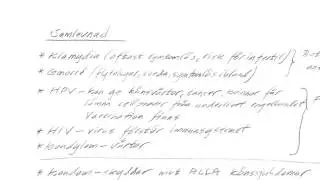 Samlevnad
* Klamydia (oftast symtomlös, risk för infertil)
* Gonorré (flytningar, sveda, symtomlös ibland)
* HPV – kan ge könsvårtor, cancer. Kvinnor får
cellprover från underlivet regelbundet
Vaccination finns
* HIV – virus förstör immunsystemet
* Kondylom – vårtor
* Kondom – skyddar mot ALLA könssjukdomar